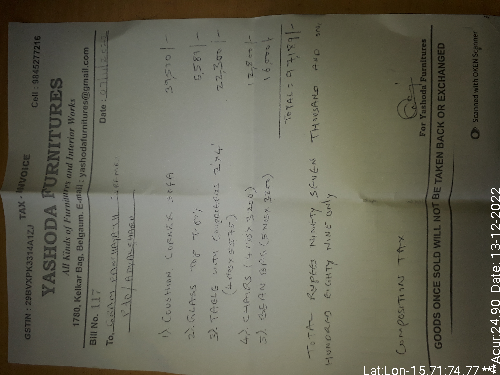 GSTIN : 29BVXPK3314A1ZJ TAX - INVOICE Cell : 9845277216
YASHODA FURNITURES
All Kinds of Furnitures and Interior Works
1780, Kelkar Bag, Belgaum. E-mail : yashodafurnitures@gmail.com
Bill No. 117 Date :
To,
1) CUSHION CORNER SOFA
2) GLASS TOP TEPOY 5,580/-
3) TABLE WITH 2'x4' 22,300/-
4) CHAIRS 12,800/-
5) BEAN BAG 16,000/-
TOTAL =
TOTAL RUPEES NINETY SEVEN THOUSAND AND ONE
HUNDRED EIGHTY NINE ONLY
COMPOSITION TAX
For Yashoda Furnitures
GOODS ONCE SOLD WILL NOT BE TAKEN BACK OR EXCHANGED
Scanned with OKEN Scanner
Lat:Lon-15.71:74.77 **Acur:24.90 Date: 13-12-2022